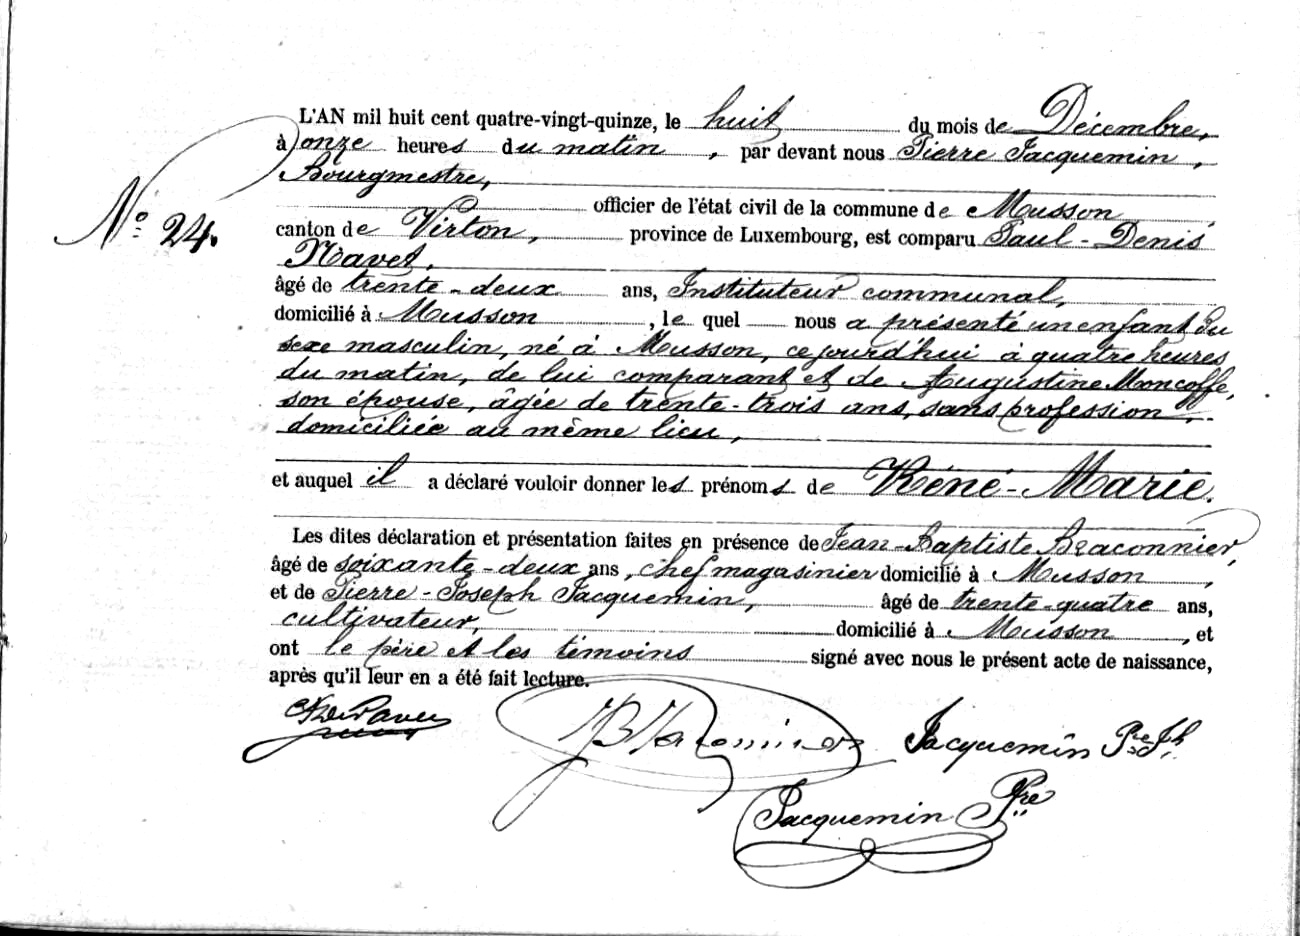 L'AN mil huit cent quatre-vingt-quinze, le huit du mois de Décembre,
à onze heures du matin, par devant nous Pierre Jacquemin,
Bourgmestre,
officier de l'état civil de la commune de Musson
N° 24.
canton de Virton, province de Luxembourg, est comparu Paul-Denis
Navet.
âgé de trente-deux ans, Instituteur communal,
domicilié à Musson, le quel nous a présenté un enfant du
sexe masculin, né à Musson, ce jourd'hui à quatre heures
du matin, de lui comparant et de Augustine Moncoffe,
son épouse, âgée de trente-trois ans, sans profession,
domiciliée au même lieu,
et auquel il a déclaré vouloir donner les prénoms de Réné-Marie.
Les dites déclaration et présentation faites en présence de Jean-Baptiste Braconnier,
âgé de soixante-deux ans, chef magasinier domicilié à Musson,
et de Pierre-Joseph Jacquemin, âgé de trente-quatre ans,
cultivateur, domicilié à Musson, et
ont le père et les témoins signé avec nous le présent acte de naissance,
après qu'il leur en a été fait lecture.
Jacquemin Pre Jh
Jacquemin Pre